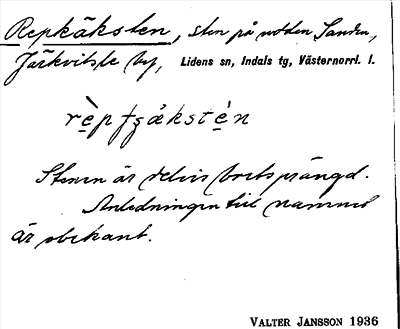 Repkäksten, sten på udden Sanden,
Järkvitsle by, Lidens sn, Indals tg, Västernorrl. l.
rèpfsǻkstèn
Stenen är delvis bortsprängd.
Anledningen till namnet
är obekant.
VALTER JANSSON 1936